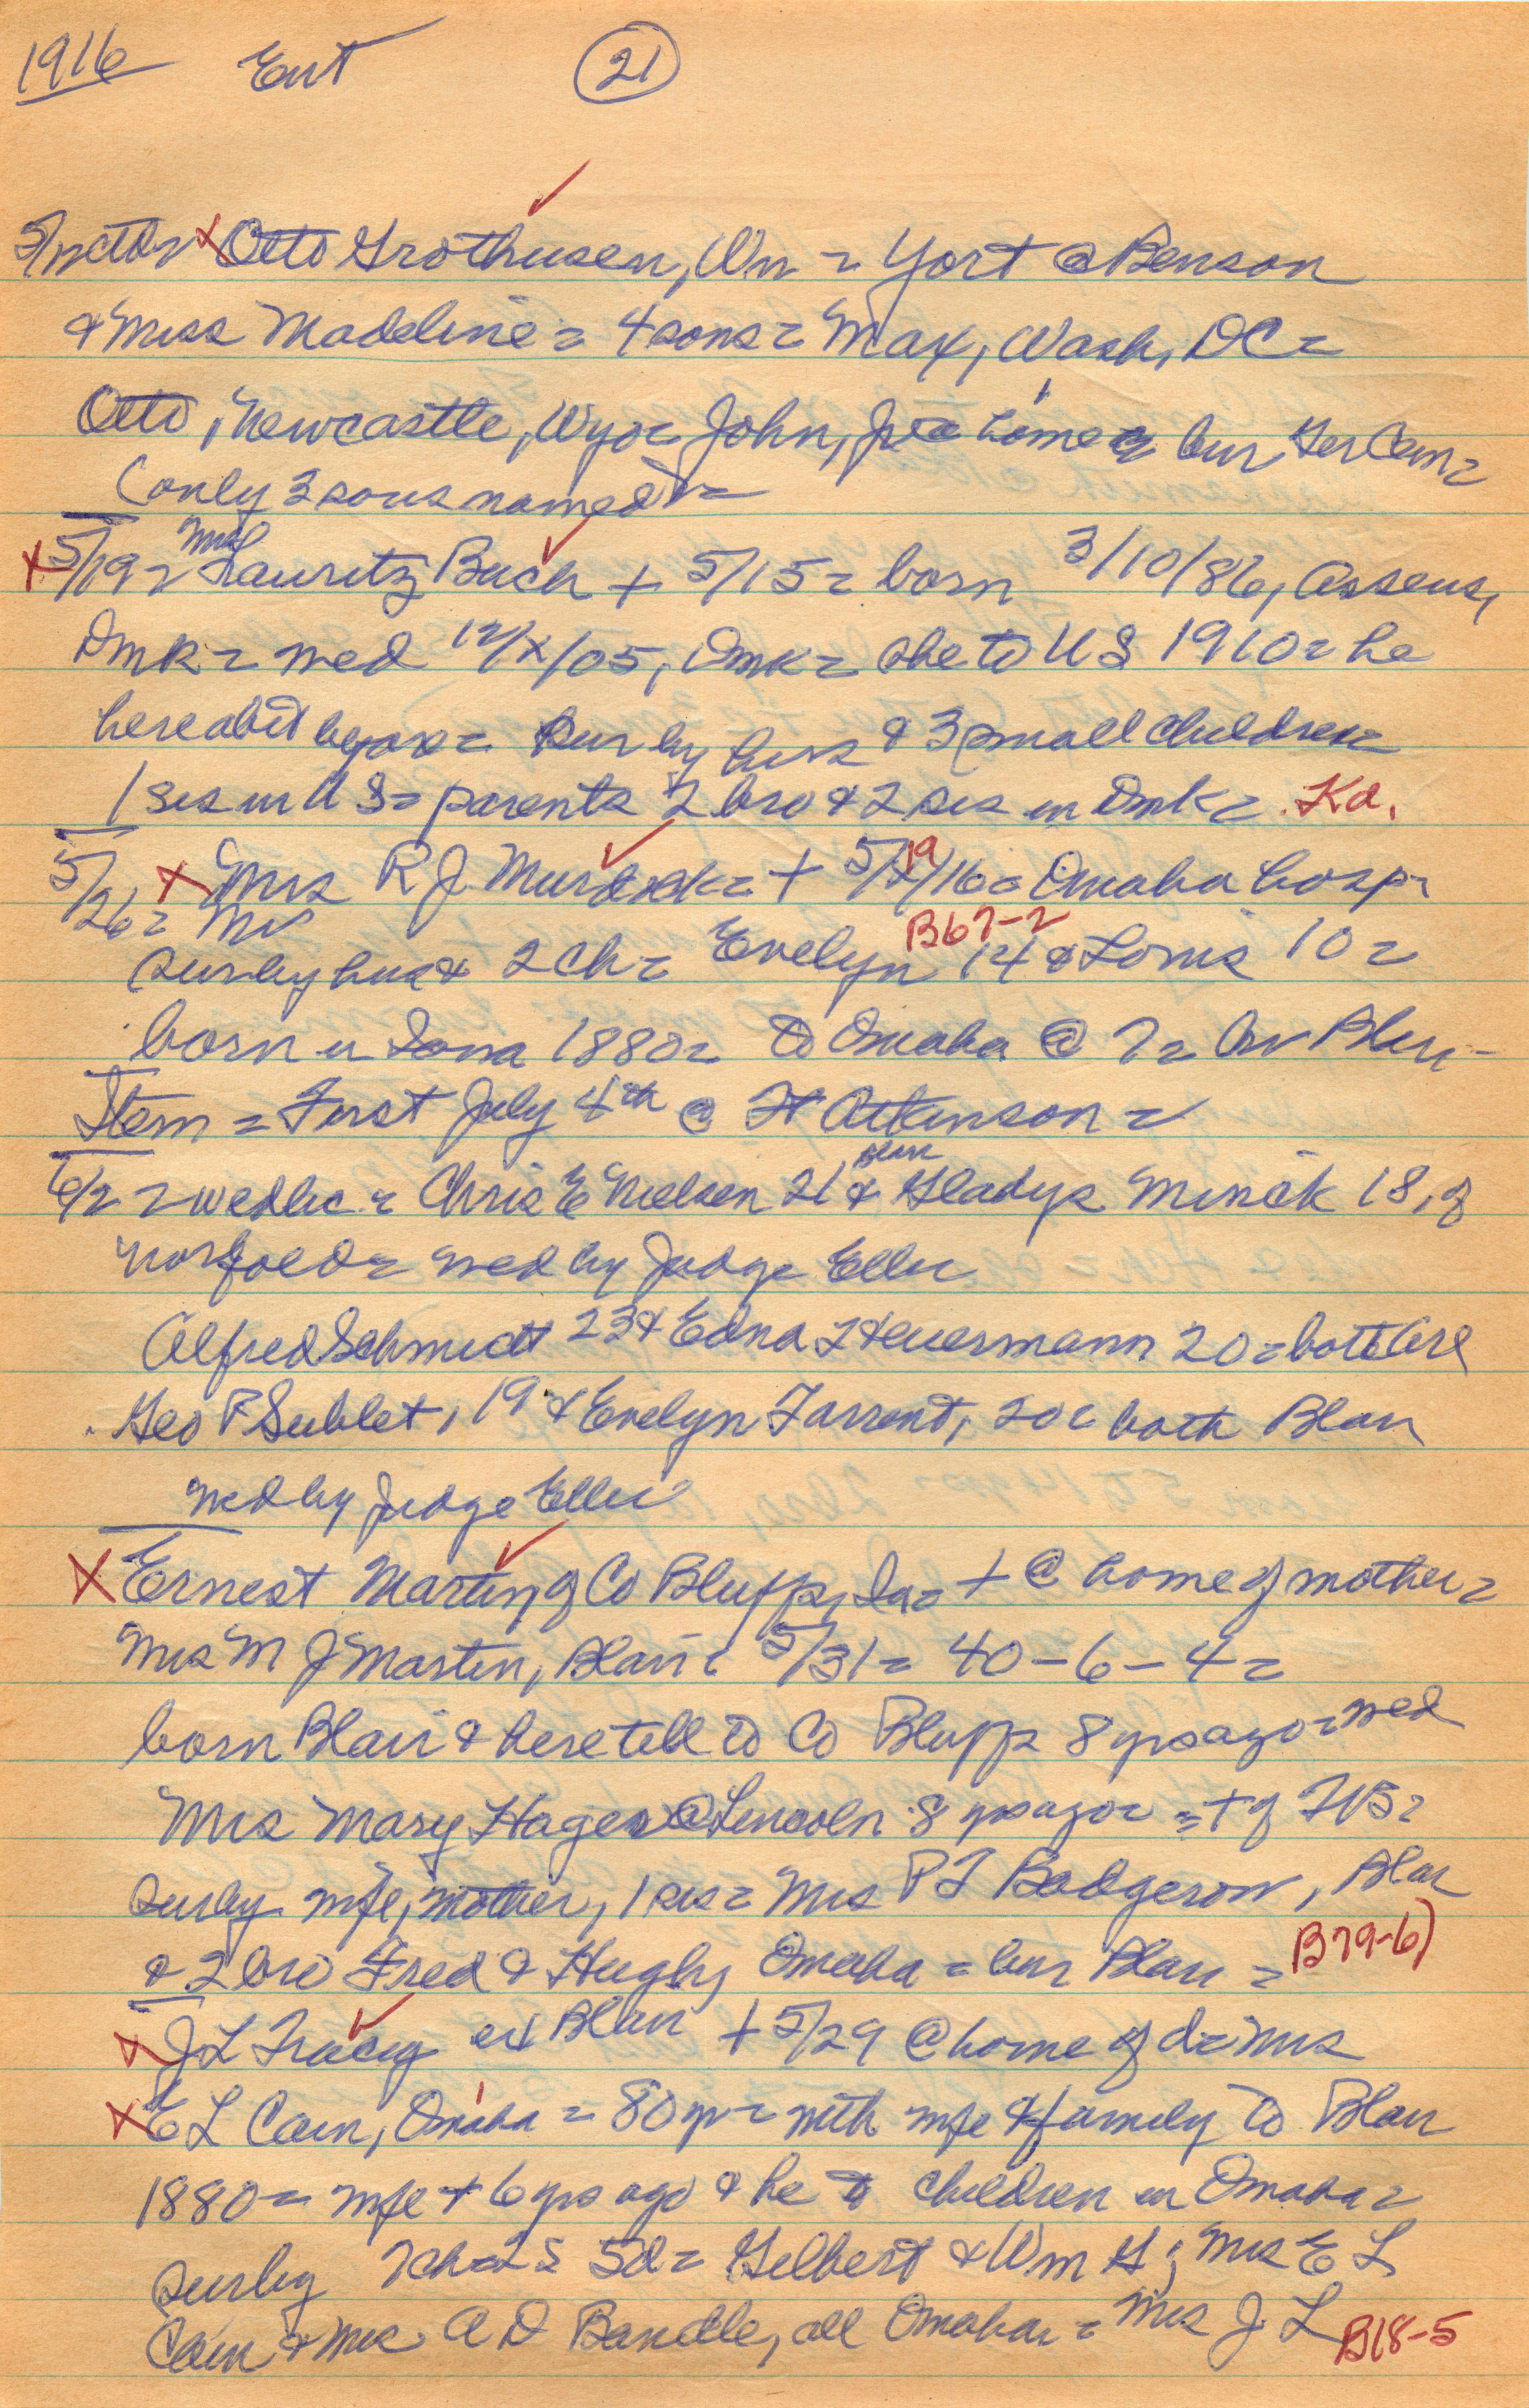 1916 Ent 21
Otto Grothusen, Wm = Yort @ Benson
& Miss Madeline = 4 sons = Max, Wash, DC =
Otto, Newcastle, Wyo = John, Jr @ home = bur Ger Cem =
(only 3 sons named) =
X 5/19 = Mrs Lauritz Buch + 5/15 = born 3/10/86, Assens,
Dmk = wed 12/x/05, Dmk = she to US 1910 = he
here abit = sur by hus & 3 small children
1 sis in US = parents 2 bro & 2 sis in Dmk = Kd.
5/26 = X Mrs R J Murdock = + 5/19/16 = Omaha hosp =
B67-2
sur by hus & 2 ch = Evelyn 14 & Loris 10 =
born in Iowa 1880 = to Omaha @ 7 = bur Blair
Item = First July 4th @ Ft Atkinson =
6/2 = wed lic = Chris E Nielsen 21 Blair & Gladys Minek 18, of
Norfold = wed by Judge Eller
Alfred Schmidt 23 & Edna Heuermann 20 = both Arl
Geo P Sublet, 19 & Evelyn Tarrent, 20 = both Blair
wed by Judge Eller
X Ernest Martin, of Co Bluffs, Ia = + @ home of mother =
Mrs M J Martin, Blair = 5/31 = 40 - 6 - 4 =
born Blair & here till to Co Bluffs 8 yrs ago = wed
Mrs Mary Hager @ Lincoln 8 yrs ago = + of TB =
sur by wife, mother, 1 sis = Mrs P T Badgerow, Blair
& 2 bro Fred & Hugh, Omaha = bur Blair = B79-6)
X J L Tracy ex Blair + 5/29 @ home of d = Mrs
X E L Cain, Omaha = 80 yr = with wife & family to Blair
1880 = wife + 6 yrs ago & he to children in Omaha =
sur by 7 ch = 2 s 5 d = Gilbert & Wm G; Mrs E L
Cain & Mrs A D Bandle, all Omaha = Mrs J L B18-5